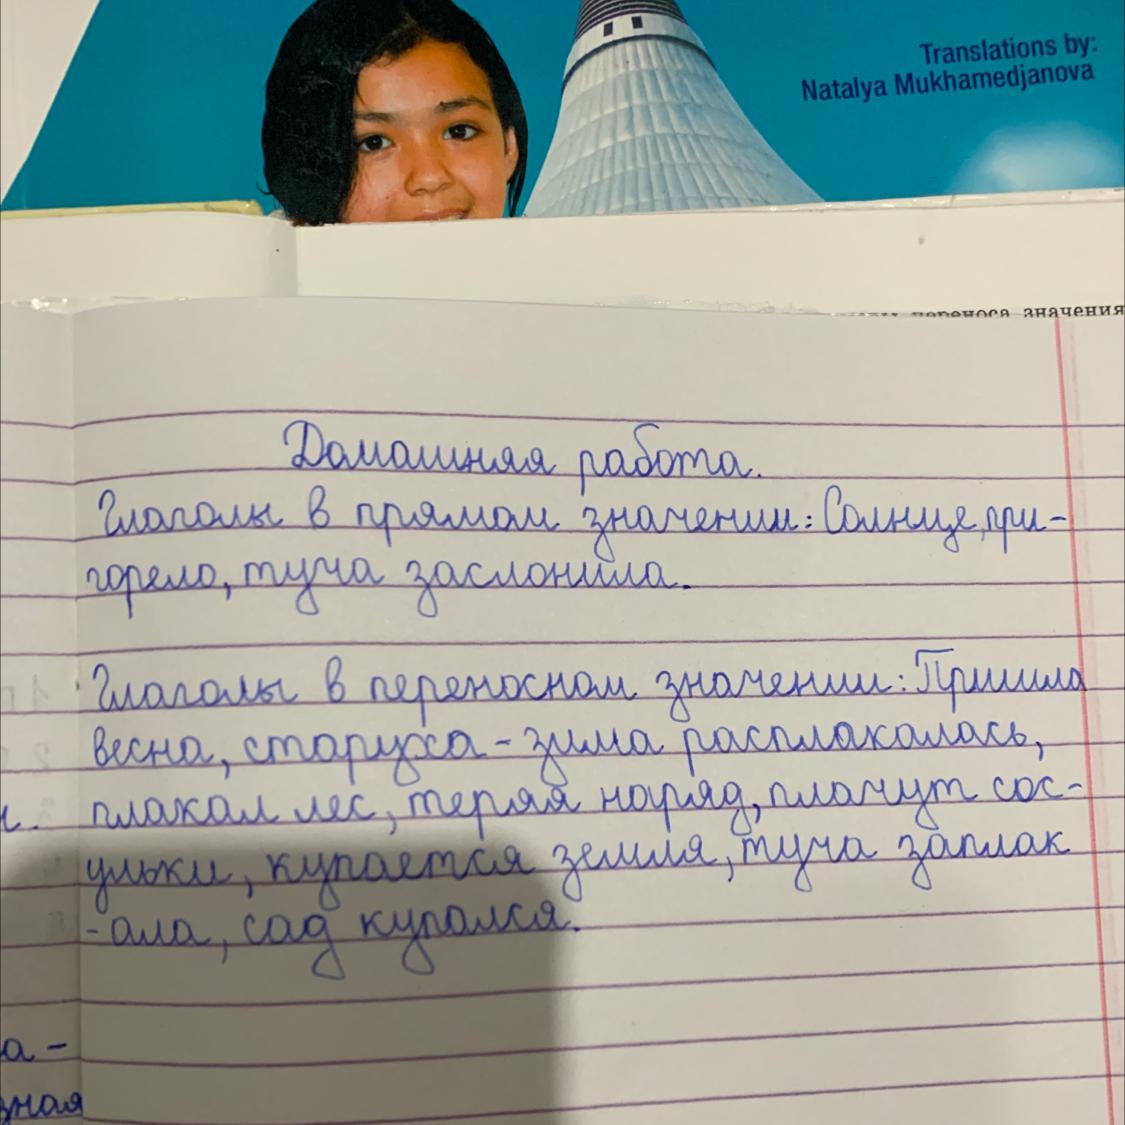 Translations by:
Natalya Mukhamedjanova
переноса значения
Домашняя работа.
Глаголы в прямом значении: Солнце, при-
горело, туча заслонила.
Глаголы в переносном значении: Пришла
весна, старуха - зима расплакалась,
плакал лес, теряя наряд, плачут сос-
ульки, купается земля, туча заплак
- ала, сад купался.
а -
зная